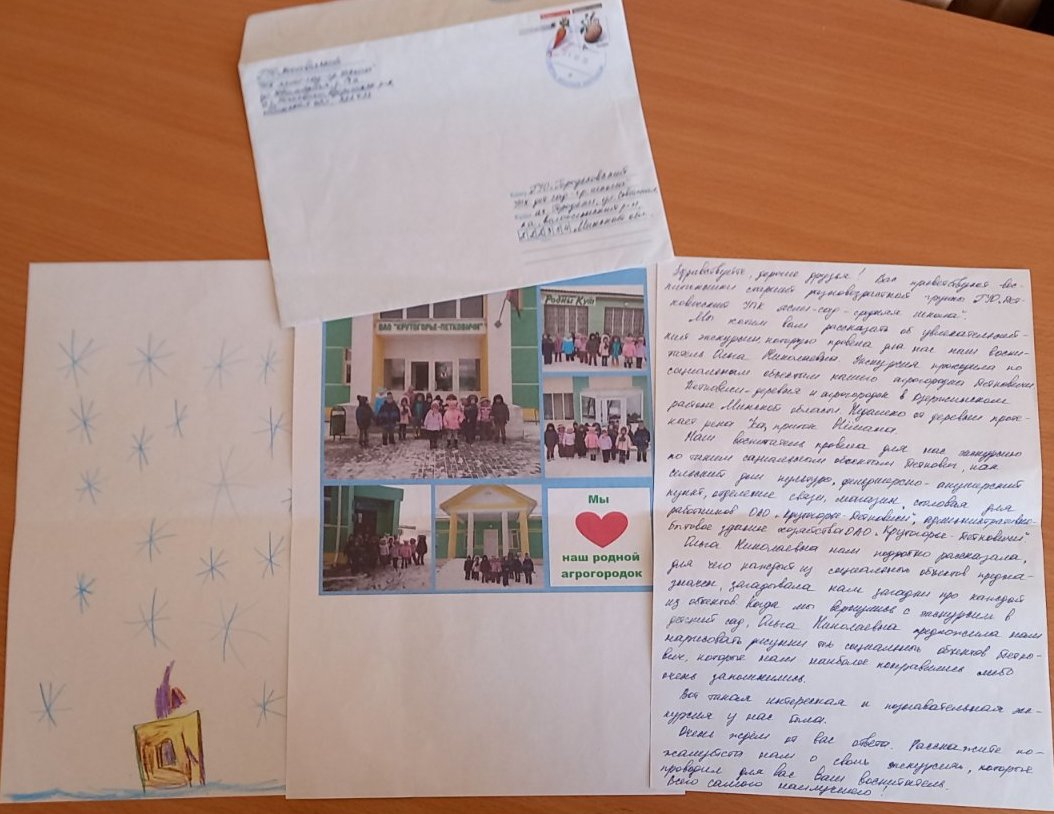 ГУО "Городьковский
УПК д/с ср. школа"
аг. Городьки, ул. Советская
Минской обл.
ОАО "КРУТОГОРЬЕ-ПЕТКОВИЧИ"
Родны Кут
Мы
наш родной
агрогородок
Здравствуйте, дорогие друзья! Вас приветствуют вос-
питанники старшей разновозрастной группы ГУО "Пет-
ковичский УПК ясли-сад-средняя школа".
Мы хотим вам рассказать об увлекательней-
кий экскурсии, которую провела для нас наш воспи-
татель Ольга Николаевна. Экскурсия проходила по
социальным объектам нашего агрогородка Петковичи
Петковичи-деревня и агрогородок в Дзержинском
районе Минской области. Недалеко от деревни проте-
кает река Уса, приток Нёмана.
Наш воспитатель провела для нас экскурсию
по таким социальным объектам Петкович, как
сельский дом культуры, фельдшерско-акушерский
пункт, отделение связи, магазин, столовая для
работников ОАО "Крутогорье-Петковичи", административно-
бытовое здание хозяйства ОАО "Крутогорье-Петковичи"
Ольга Николаевна нам подробно рассказала,
для чего каждый из социальных объектов предна-
значен, загадывала нам загадки про каждый
из объектов. Когда мы вернулись с экскурсии в
детский сад, Ольга Николаевна предложила нам
нарисовать рисунки тех социальных объектов Петко-
вич, которые нам наиболее понравились либо
очень запомнились.
Вот такая интересная и познавательная эк-
курсия у нас была.
Очень ждём от вас ответа. Расскажите по-
жалуйста нам о своих экскурсиях, которые
проводил для вас Ваш воспитатель.
Всего самого наилучшего!